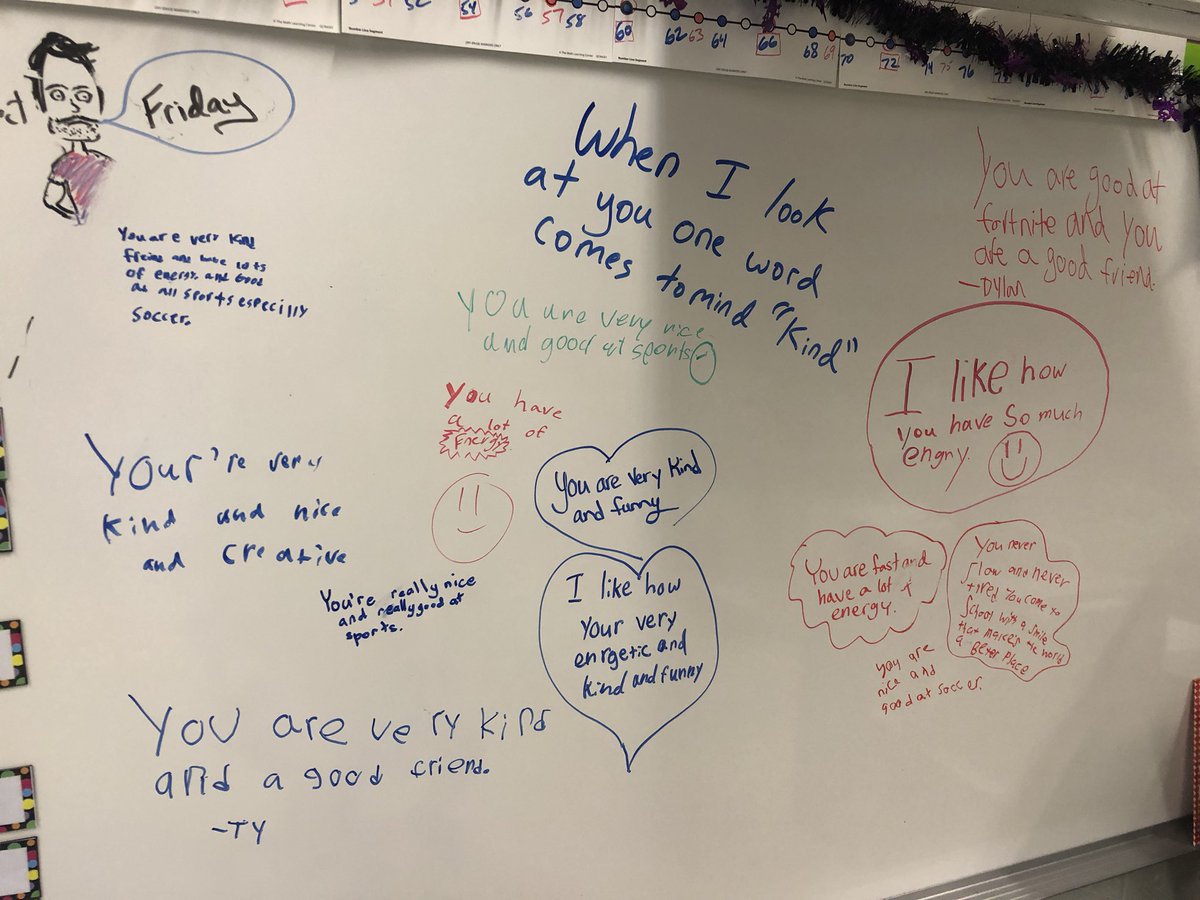 54
56 57 58
60
62 63 64
66
68 69 70
72
74 75 76
Friday
When I look
at you one word
comes to mind "Kind"
You are good at
fortnite and you
are a good friend.
-Dylan
You are very kind
and have lots
of energy. and Good
at all sports especilly
soccer.
you are very nice
and good at sports
I like how
you have so much
engry.
You have
a lot of
Energy
You are very kind
and funny
Your're very
kind and nice
and creative
You're really nice
and really good at
sports.
I like how
your very
enrgetic and
kind and funny
You are fast and
have a lot of
energy.
You never
slow and never
tired You come to
School with a smile
that makes the world
a Beter Place
you are
nice and
good at soccer.
You are very kind
and a good friend.
-TY